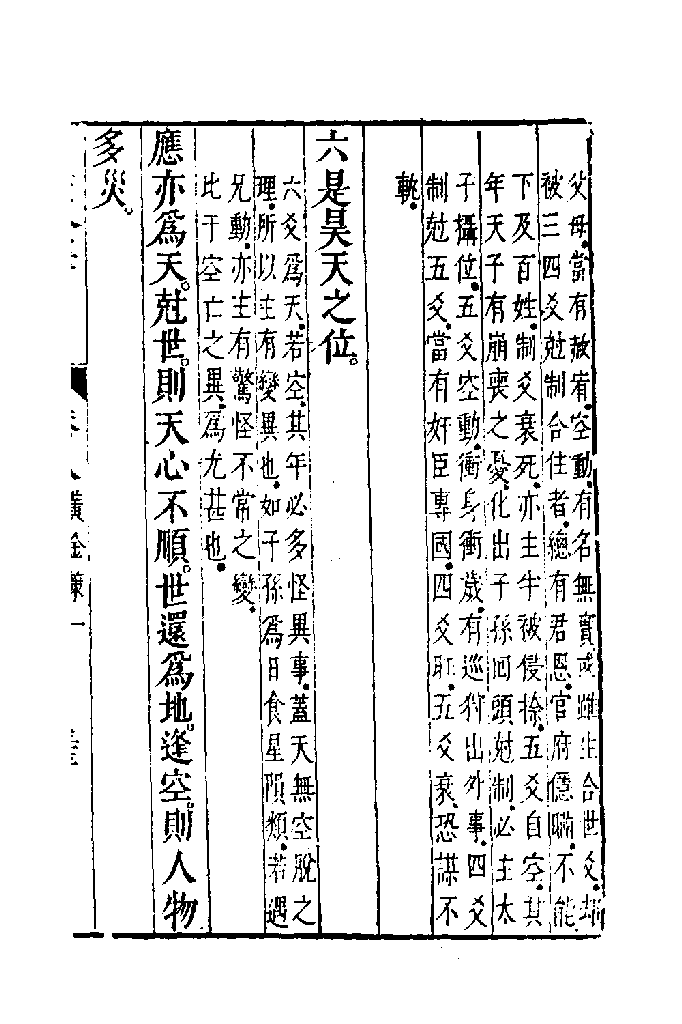 父母當有赦宥空動有名無實或雖生合世爻却
被三四爻尅制合住者總有君恩官府隱瞞不能
下及百姓制爻衰死亦主半被侵掠五爻自空其
年天子有崩喪之憂化出子孫回頭尅制必主太
子攝位五爻空動衝身衝歲有巡狩出外事四爻
制尅五爻當有奸臣專國四爻旺五爻衰恐謀不
軌
六是昊天之位
六爻為天若空其年必多怪異事蓋天無空脫之
理所以主有變異也如子孫為日食星隕類若遇
兄動亦主有驚怪不常之變
比于空亡之異為尤甚也
應亦爲天尅世則天心不順世還爲地逢空則人物
多災
卷八黃金一